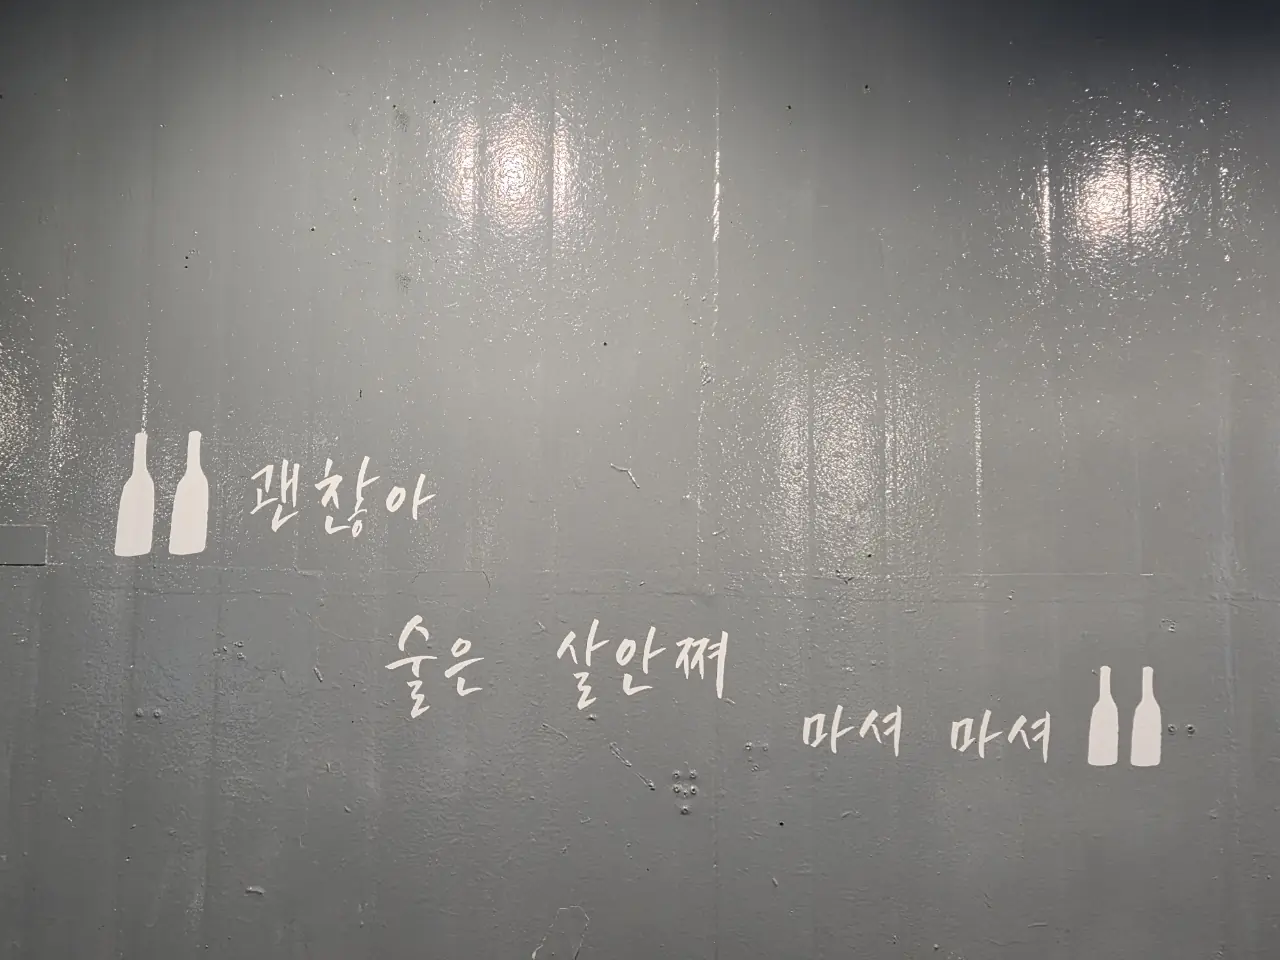 괜찮아
술은 살안쪄
마셔 마셔